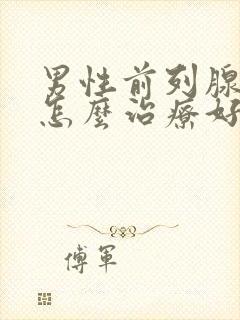 男性前列腺
怎麼治療好
傅軍